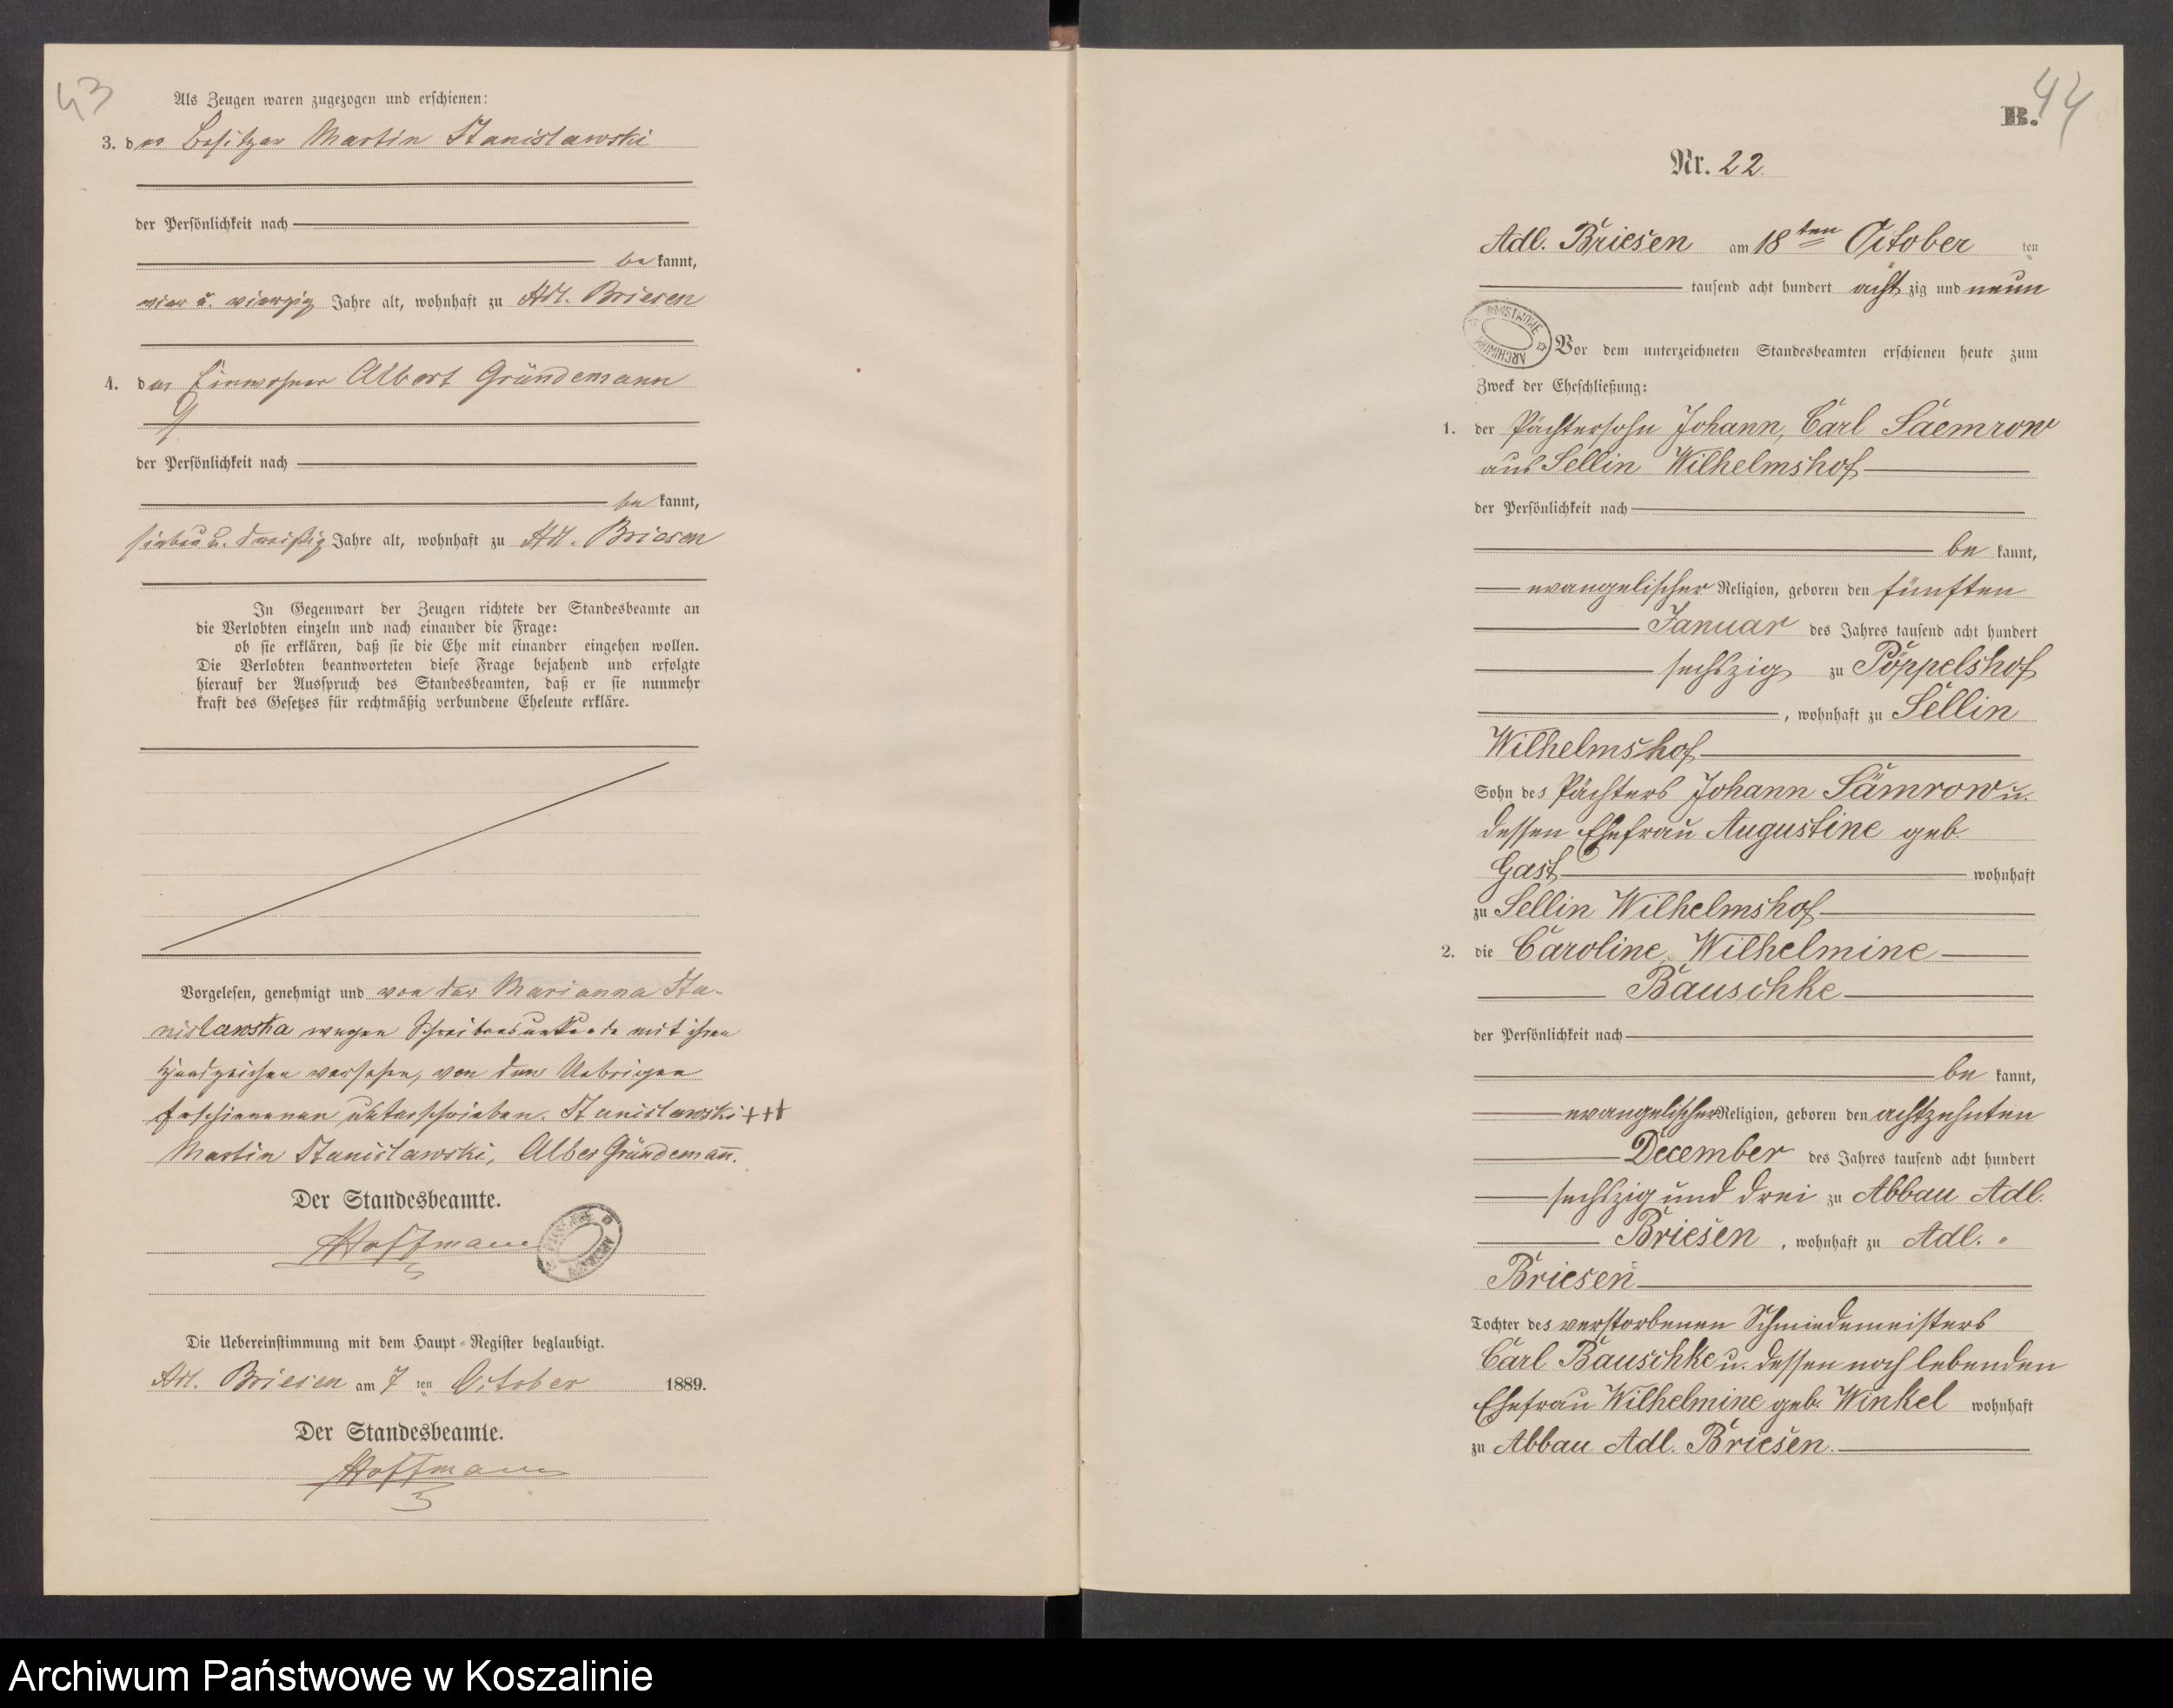 43
Als Zeugen waren zugezogen und erschienen:
3. der Besitzer Martin Stanislawski
der Persönlichkeit nach
be kannt,
vier u. vierzig Jahre alt, wohnhaft zu Adl. Briesen
4. der Einwohner Albert Gründemann
der Persönlichkeit nach
be kannt,
sieben u. dreißig Jahre alt, wohnhaft zu Adl. Briesen
In Gegenwart der Zeugen richtete der Standesbeamte an
die Verlobten einzeln und nach einander die Frage:
ob sie erklären, daß sie die Ehe mit einander eingehen wollen.
Die Verlobten beantworteten diese Frage bejahend und erfolgte
hierauf der Ausspruch des Standesbeamten, daß er sie nunmehr
kraft des Gesetzes für rechtmäßig verbundene Eheleute erkläre.
Vorgelesen, genehmigt und von der Marianna Sta-
nislawska wegen Schreibensunkunde mit ihren
Handzeichen versehen, von den Uebrigen
Erschienenen unterschrieben. Stanislawski +++
Martin Stanislawski, Alber Gründeman̄.
Der Standesbeamte.
Hoffmann
Die Uebereinstimmung mit dem Haupt-Register beglaubigt.
Adl. Briesen am 7 ten October 1889.
Der Standesbeamte.
Hoffmann
44
B.
Nr. 22.
Adl. Briesen am 18ten October ten
tausend acht hundert acht zig und neun
ARCHIWUM PAŃSTWOWE
Vor dem unterzeichneten Standesbeamten erschienen heute zum
Zweck der Eheschließung:
1. der Pächtersohn Johann, Carl Saemrow
aus Sellin Wilhelmshof
der Persönlichkeit nach
be kannt,
evangelischer Religion, geboren den fünften
Januar des Jahres tausend acht hundert
sechszig zu Pöppelshof
, wohnhaft zu Sellin
Wilhelmshof
Sohn des Pächters Johann Sämrow u.
dessen Ehefrau Augustine geb.
Gast wohnhaft
zu Sellin Wilhelmshof
2. die Caroline, Wilhelmine
Bauschke
der Persönlichkeit nach
be kannt,
evangelischer Religion, geboren den achtzehnten
December des Jahres tausend acht hundert
sechszig und drei zu Abbau Adl.
Briesen, wohnhaft zu Adl.
Briesen
Tochter des verstorbenen Schmiedemeisters
Carl Bauschke u. dessen noch lebenden
Ehefrau Wilhelmine geb. Winkel wohnhaft
zu Abbau Adl. Briesen.
Archiwum Państwowe w Koszalinie